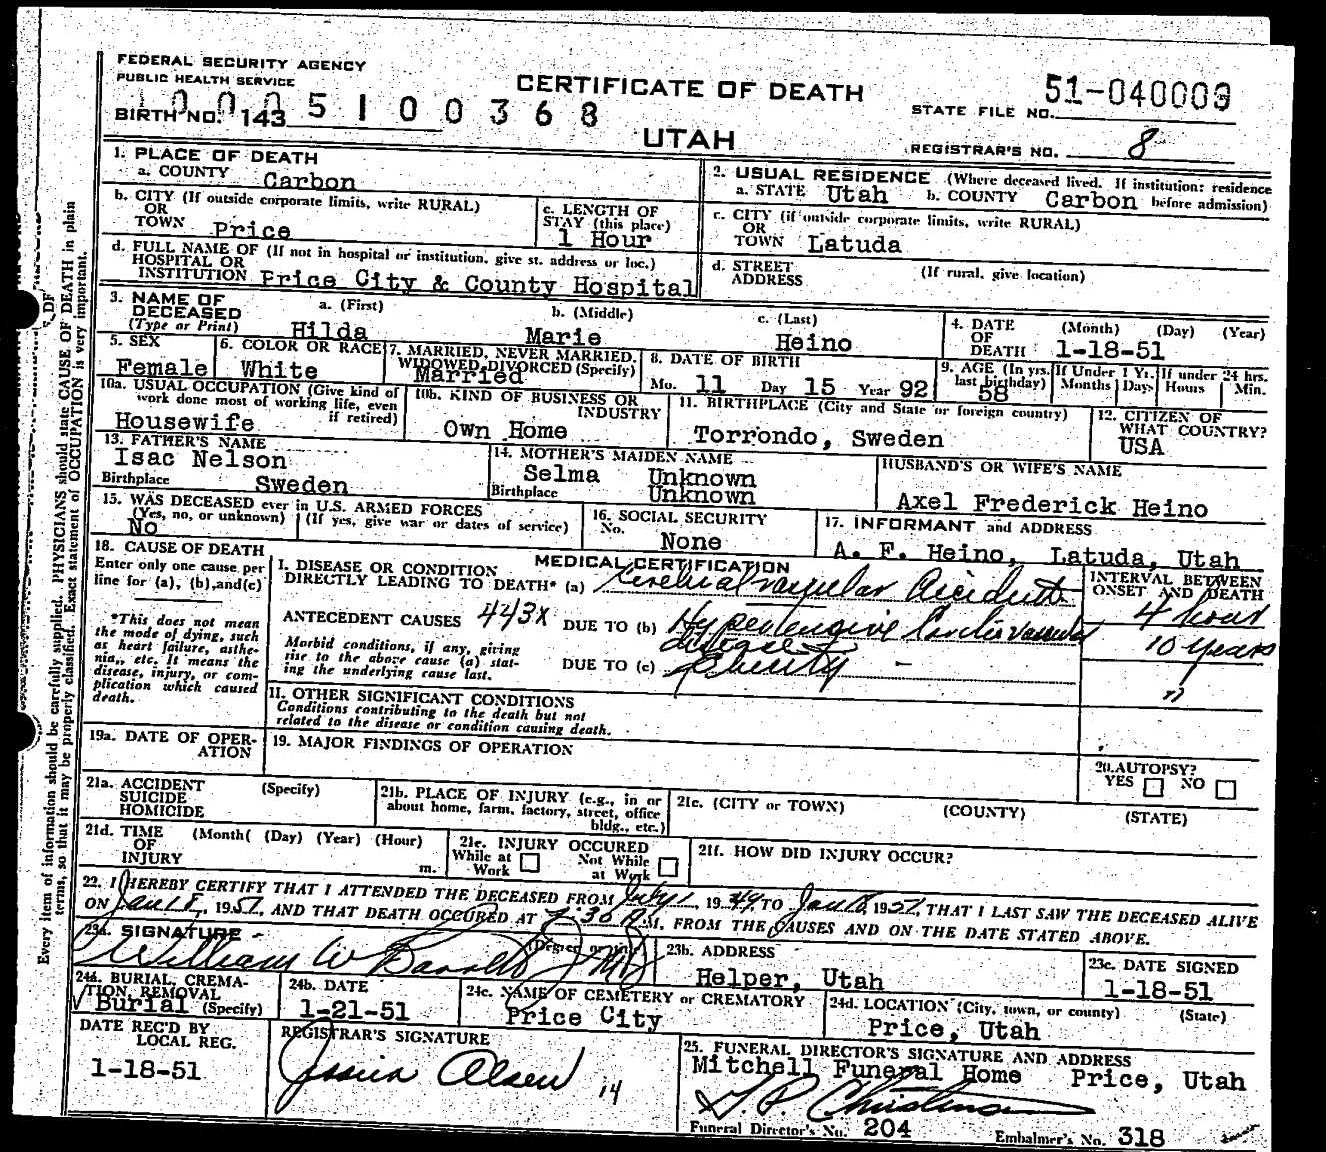 FEDERAL SECURITY AGENCY
PUBLIC HEALTH SERVICE
CERTIFICATE OF DEATH
UTAH
STATE FILE NO. 51-040009
BIRTH NO. 143
1 0 0 0 5 1 0 0 3 6 8
REGISTRAR'S NO. 8
Every item of information should be carefully supplied. PHYSICIANS should state CAUSE OF DEATH in plain
terms, so that it may be properly classified. Exact statement of OCCUPATION is very important.
1. PLACE OF DEATH
a. COUNTY Carbon
b. CITY (If outside corporate limits, write RURAL)
OR
TOWN Price
c. LENGTH OF
STAY (this place)
1 Hour
d. FULL NAME OF (If not in hospital or institution, give st. address or loc.)
HOSPITAL OR
INSTITUTION Price City & County Hospital
2. USUAL RESIDENCE (Where deceased lived. If institution: residence
a. STATE Utah b. COUNTY Carbon before admission)
c. CITY (if outside corporate limits, write RURAL)
OR
TOWN Latuda
d. STREET (If rural, give location)
ADDRESS
3. NAME OF DECEASED (Type or Print)
a. (First) Hilda
b. (Middle) Marie
c. (Last) Heino
4. DATE OF DEATH (Month) (Day) (Year)
1-18-51
5. SEX
Female
6. COLOR OR RACE
White
7. MARRIED, NEVER MARRIED,
WIDOWED, DIVORCED (Specify)
Married
8. DATE OF BIRTH
Mo. 11 Day 15 Year 92
9. AGE (In yrs. last birthday)
58
If Under 1 Yr.
Months Days
If under 24 hrs.
Hours Min.
10a. USUAL OCCUPATION (Give kind of
work done most of working life, even
if retired)
Housewife
10b. KIND OF BUSINESS OR
INDUSTRY
Own Home
11. BIRTHPLACE (City and State or foreign country)
Torrondo, Sweden
12. CITIZEN OF
WHAT COUNTRY?
USA
13. FATHER'S NAME
Isac Nelson
Birthplace Sweden
14. MOTHER'S MAIDEN NAME
Selma Unknown
Birthplace Unknown
HUSBAND'S OR WIFE'S NAME
Axel Frederick Heino
15. WAS DECEASED ever in U.S. ARMED FORCES
(Yes, no, or unknown) (If yes, give war or dates of service)
No
16. SOCIAL SECURITY
No.
None
17. INFORMANT and ADDRESS
A. F. Heino, Latuda, Utah
18. CAUSE OF DEATH
Enter only one cause per
line for (a), (b), and (c)
*This does not mean
the mode of dying, such
as heart failure, asthe-
nia, etc. It means the
disease, injury, or com-
plication which caused
death.
MEDICAL CERTIFICATION
I. DISEASE OR CONDITION
DIRECTLY LEADING TO DEATH* (a) Cerebral vascular Accident
ANTECEDENT CAUSES 443X DUE TO (b) Hypertensive Cardiovascular
disease
Morbid conditions, if any, giving
rise to the above cause (a) stat-
ing the underlying cause last.
DUE TO (c) Obesity -
INTERVAL BETWEEN
ONSET AND DEATH
4 hour
10 years
"
II. OTHER SIGNIFICANT CONDITIONS
Conditions contributing to the death but not
related to the disease or condition causing death.
19a. DATE OF OPER-
ATION
19. MAJOR FINDINGS OF OPERATION
20. AUTOPSY?
YES NO
21a. ACCIDENT (Specify)
SUICIDE
HOMICIDE
21b. PLACE OF INJURY (e.g., in or
about home, farm, factory, street, office
bldg., etc.)
21c. (CITY or TOWN) (COUNTY) (STATE)
21d. TIME (Month( (Day) (Year) (Hour)
OF
INJURY m.
21e. INJURY OCCURED
While at Work
Not While at Work
21f. HOW DID INJURY OCCUR?
22. I HEREBY CERTIFY THAT I ATTENDED THE DECEASED FROM July 1, 1949, TO Jan 18, 1951, THAT I LAST SAW THE DECEASED ALIVE
ON Jan 18, 1951, AND THAT DEATH OCCURED AT :30 M, FROM THE CAUSES AND ON THE DATE STATED ABOVE.
23a. SIGNATURE (Degree or title)
William W Barrett MD
23b. ADDRESS
Helper, Utah
23c. DATE SIGNED
1-18-51
24a. BURIAL, CREMA-
TION, REMOVAL
Burial (Specify)
24b. DATE
1-21-51
24c. NAME OF CEMETERY or CREMATORY
Price City
24d. LOCATION (City, town, or county) (State)
Price, Utah
DATE REC'D BY
LOCAL REG.
1-18-51
REGISTRAR'S SIGNATURE
Olsen 14
25. FUNERAL DIRECTOR'S SIGNATURE AND ADDRESS
Mitchell Funeral Home Price, Utah
Christensen
Funeral Director's No. 204 Embalmer's No. 318